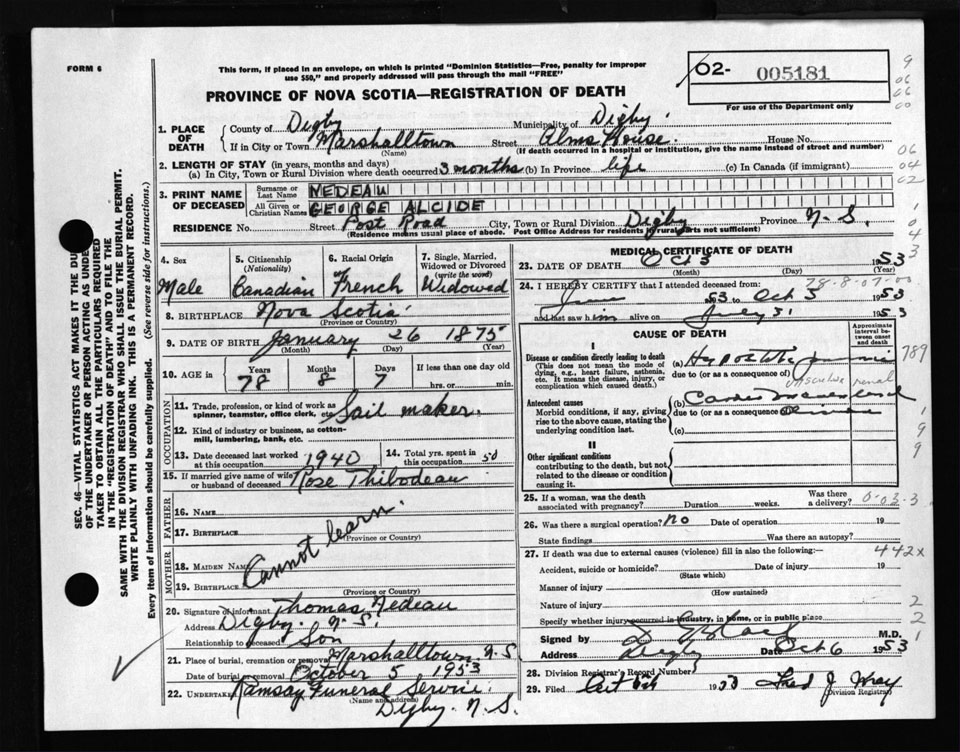 FORM 6
This form, if placed in an envelope, on which is printed "Dominion Statistics—Free, penalty for improper
use $50," and properly addressed will pass through the mail "FREE"
02- 005181
For use of the Department only
PROVINCE OF NOVA SCOTIA—REGISTRATION OF DEATH
9
06
06
00
1. PLACE OF DEATH
County of Digby Municipality of Digby.
If in City or Town Marshalltown Street Alms House. House No.
(Name) (If death occurred in a hospital or institution, give the name instead of street and number)
06
04
02
2. LENGTH OF STAY (in years, months and days)
(a) In City, Town or Rural Division where death occurred 3 months (b) In Province life (c) In Canada (if immigrant)
3. PRINT NAME OF DECEASED
Surname or Last Name NEDEAU
All Given or Christian Names GEORGE ALCIDE
RESIDENCE No. Street Post Road City, Town or Rural Division Digby Province N.S.
(Residence means usual place of abode. Post Office Address for residents in rural parts not sufficient)
1
0
4
3
SEC. 46—VITAL STATISTICS ACT MAKES IT THE DU
OF THE UNDERTAKER OR PERSON ACTING AS UNDE
TAKER TO OBTAIN ALL THE PARTICULARS REQUIRED
IN THE "REGISTRATION OF DEATH" AND TO FILE THE
SAME WITH THE DIVISION REGISTRAR WHO SHALL ISSUE THE BURIAL PERMIT.
WRITE PLAINLY WITH UNFADING INK. THIS IS A PERMANENT RECORD.
Every item of information should be carefully supplied. (See reverse side for instructions.)
4. Sex
Male
5. Citizenship
(Nationality)
Canadian
6. Racial Origin
French
7. Single, Married,
Widowed or Divorced
(write the word)
Widowed
8. BIRTHPLACE Nova Scotia
(Province or Country)
9. DATE OF BIRTH January 26 1875
(Month) (Day) (Year)
10. AGE in
Years Months Days If less than one day
78 8 7 hrs. or min.
OCCUPATION
11. Trade, profession, or kind of work as
spinner, teamster, office clerk, etc. Sail maker.
12. Kind of industry or business, as cotton-
mill, lumbering, bank, etc.
13. Date deceased last worked
at this occupation 1940
14. Total yrs. spent in
this occupation 50
15. If married give name of wife
or husband of deceased Rose Thibodeau
FATHER
16. NAME
17. BIRTHPLACE
(Province or Country)
Cannot learn.
MOTHER
18. MAIDEN NAME
19. BIRTHPLACE
(Province or Country)
20. Signature of informant Thomas Nedeau
Address Digby. N.S.
Relationship to deceased Son
21. Place of burial, cremation or removal Marshalltown N.S.
Date of burial or removal October 5 1953
22. UNDERTAKER Ramsay Funeral Service.
(Name and address)
Digby. N.S.
MEDICAL CERTIFICATE OF DEATH
23. DATE OF DEATH Oct 3 1953
(Month) (Day) (Year)
78-8-07-00
24. I HEREBY CERTIFY that I attended deceased from:
June 53 to Oct 3 1953
and last saw him alive on July 31 1953
CAUSE OF DEATH
Approximate interval between onset and death
I
Disease or condition directly leading to death
(This does not mean the mode of dying, e.g., heart failure, asthenia, etc. It means the disease, injury, or complication which caused death.)
(a) Hypostatic
due to (or as a consequence of)
789
renal
Antecedent causes
Morbid conditions, if any, giving rise to the above cause, stating the underlying condition last.
(b)
due to (or as a consequence of)
(c)
9
9
II
Other significant conditions
contributing to the death, but not related to the disease or condition causing it.
25. If a woman, was the death
associated with pregnancy? Duration weeks. Was there a delivery?
0-03-3
26. Was there a surgical operation? No Date of operation 19
State findings Was there an autopsy?
27. If death was due to external causes (violence) fill in also the following:—
442x
Accident, suicide or homicide? Date of injury 19
(State which)
Manner of injury
(How sustained)
Nature of injury
2
Specify whether injury occurred in industry, in home, or in public place
2
Signed by M.D.
1
Address Digby Date Oct 6 1953
28. Division Registrar's Record Number
29. Filed Oct 6th 1953 Fred J Wray
Division Registrar